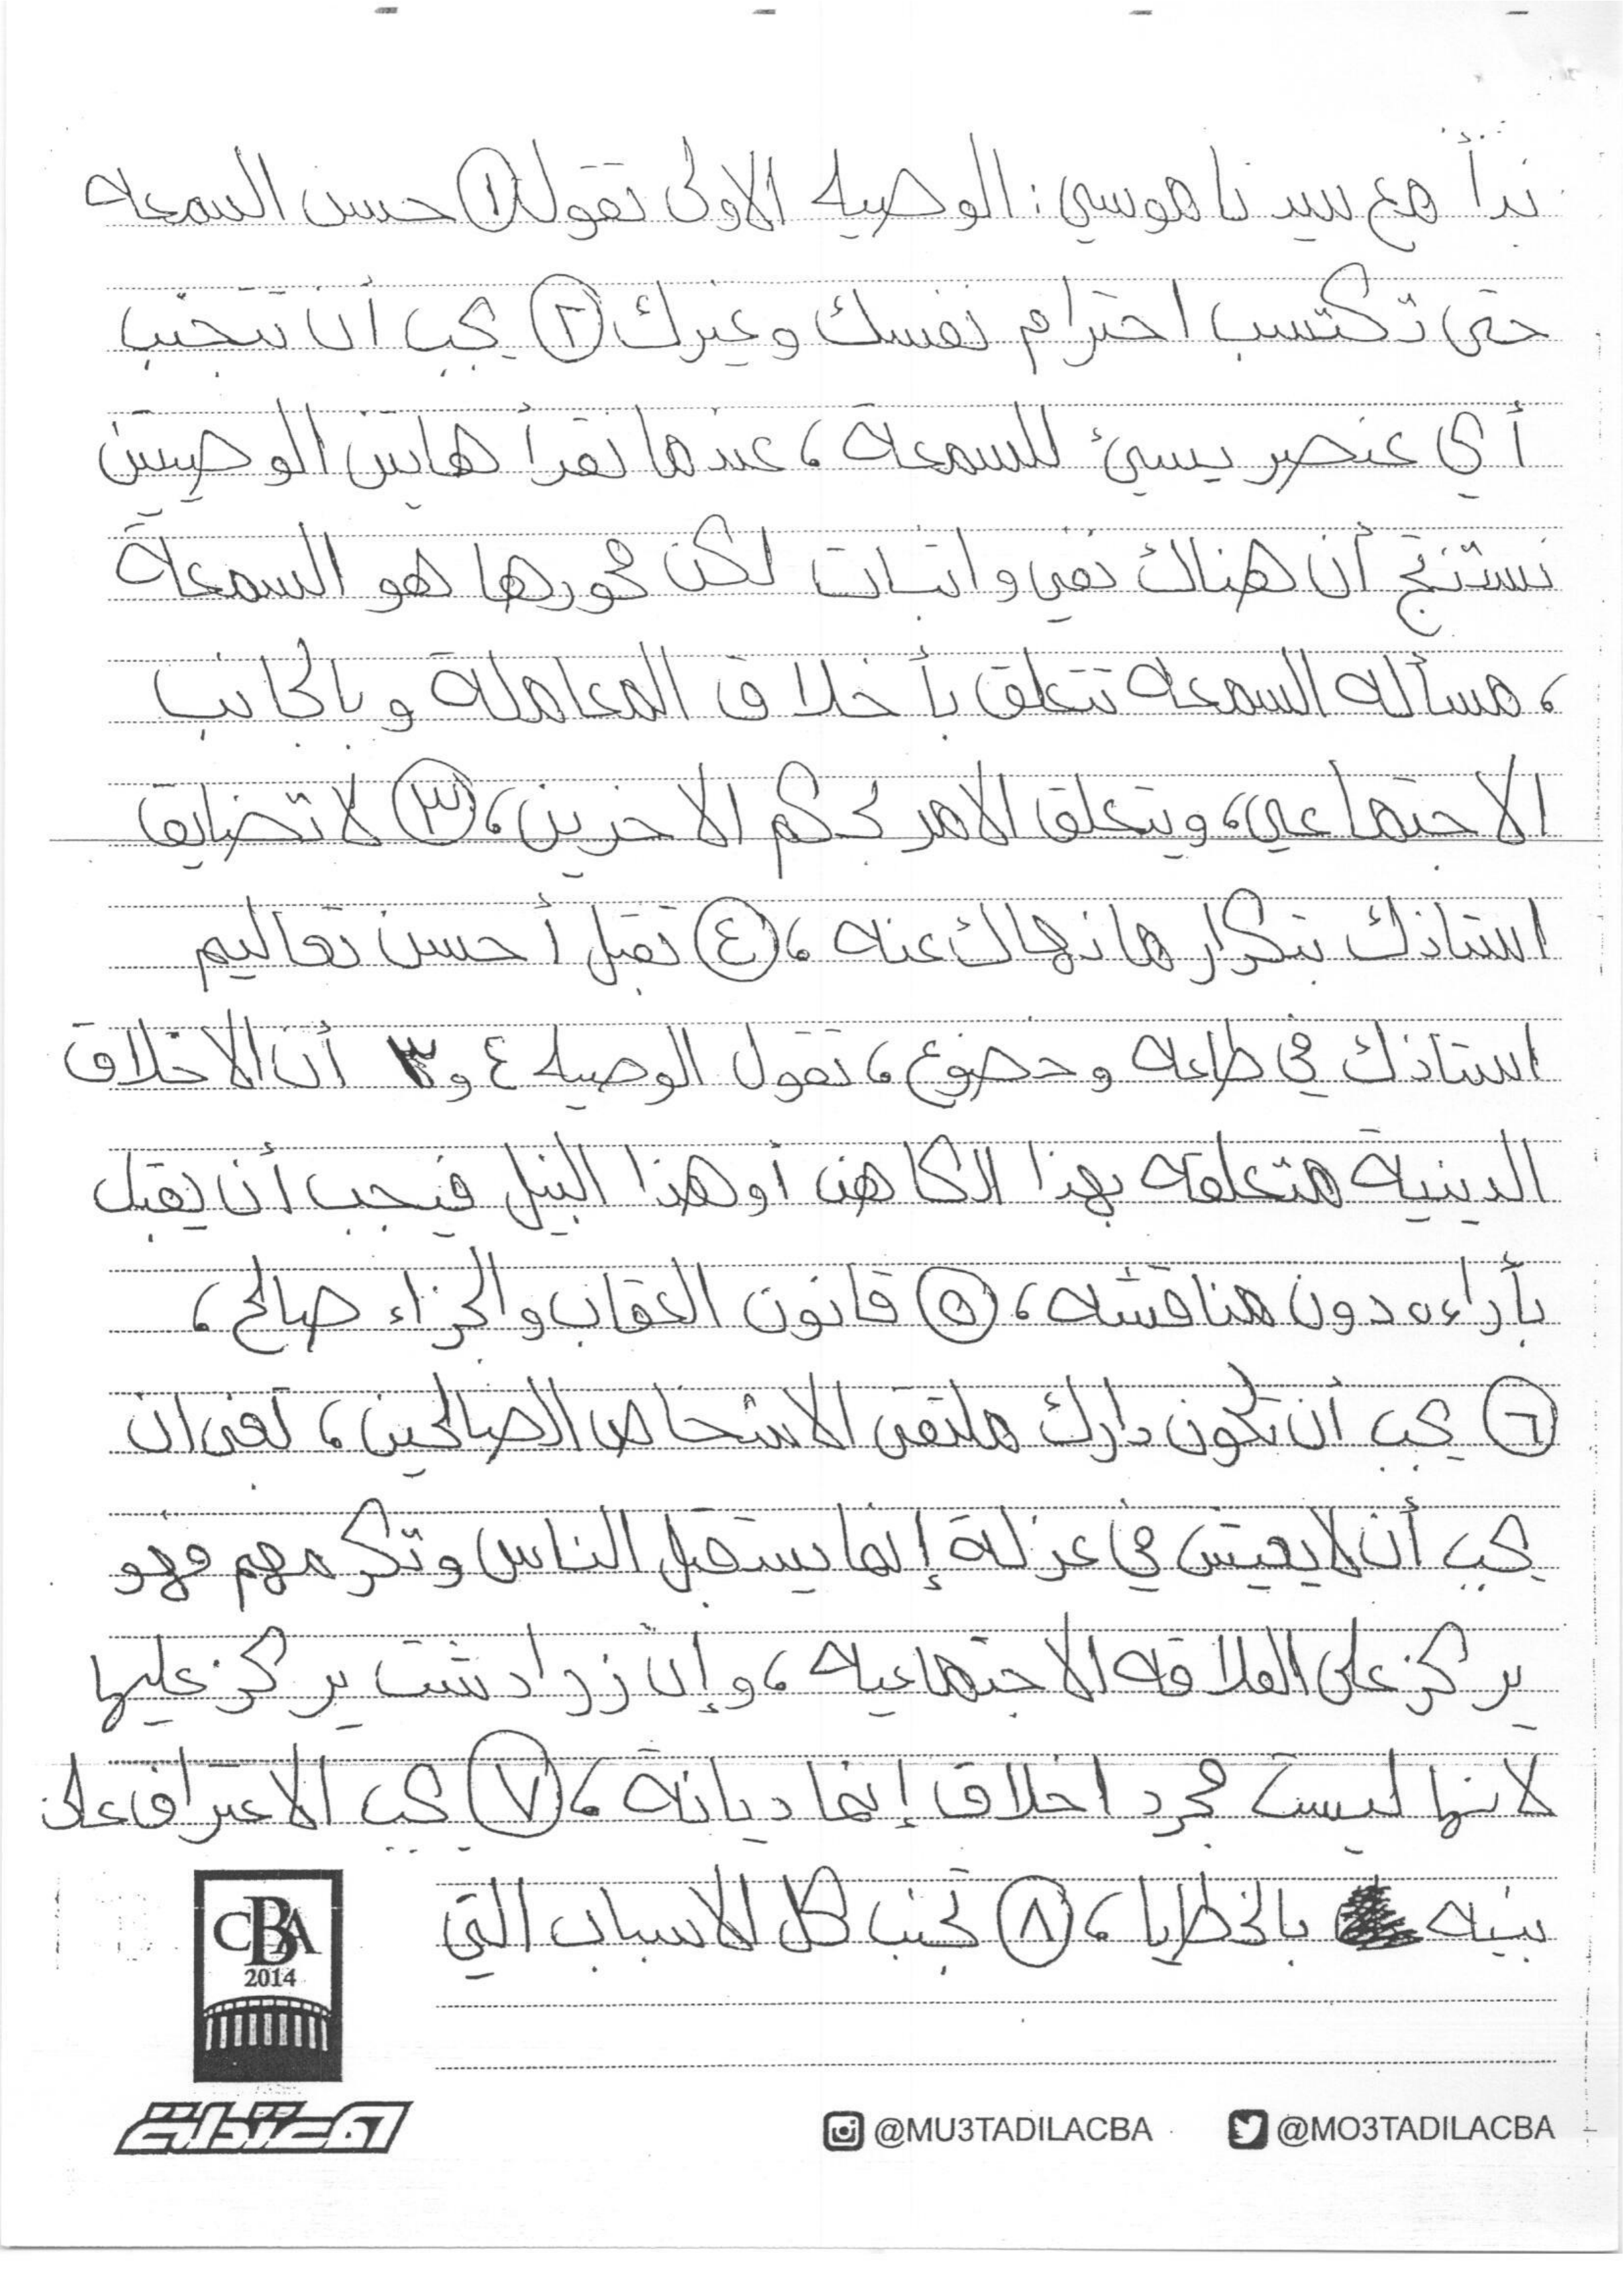 نبدأ مع سيدنا موسي: الوصيه الاولى تقول ① حسن السمعه
حتى تكتسب احترام نفسك وغيرك ② يجب أن تتجنب
أي عنصر يسيئ للسمعة، عندما نقرأ هاتين الوصيتين
نستنتج أن هناك نفي واثبات لكن محورها هو السمعة
، مسأله السمعه تتعلق بأخلاق المعاملة وبالجانب
الاجتماعي، ويتعلق الامر بحكم الاخرين، ③ لا تضايق
استاذك بتكرار ما نهاك عنه، ④ تقبل أحسن تعاليم
استاذك في طاعه وخضوع، تقول الوصيه ٤ و٣ أن الاخلاق
الدينية متعلقه بهذا الكاهن أو هذا النبيل فيجب أن يقبل
بأراءه دون مناقشه، ⑤ قانون العقاب والجزاء صالح،
⑥ يجب أن تكون دارك ملتقى الاشخاص الصالحين، تعني ان
يجب أن لا يعيش في عزلة إنما يستقبل الناس وتكرمهم فهو
يركز على العلاقه الاجتماعيه، وإن زرادشت يركز عليها
لانها ليست مجرد اخلاق إنما ديانة، ⑦ يجب الاعتراف على
بنيه بالخطايا، ⑧ تجنب كل الاسباب التي
CBA
2014
معتدلة
@MU3TADILACBA @MO3TADILACBA